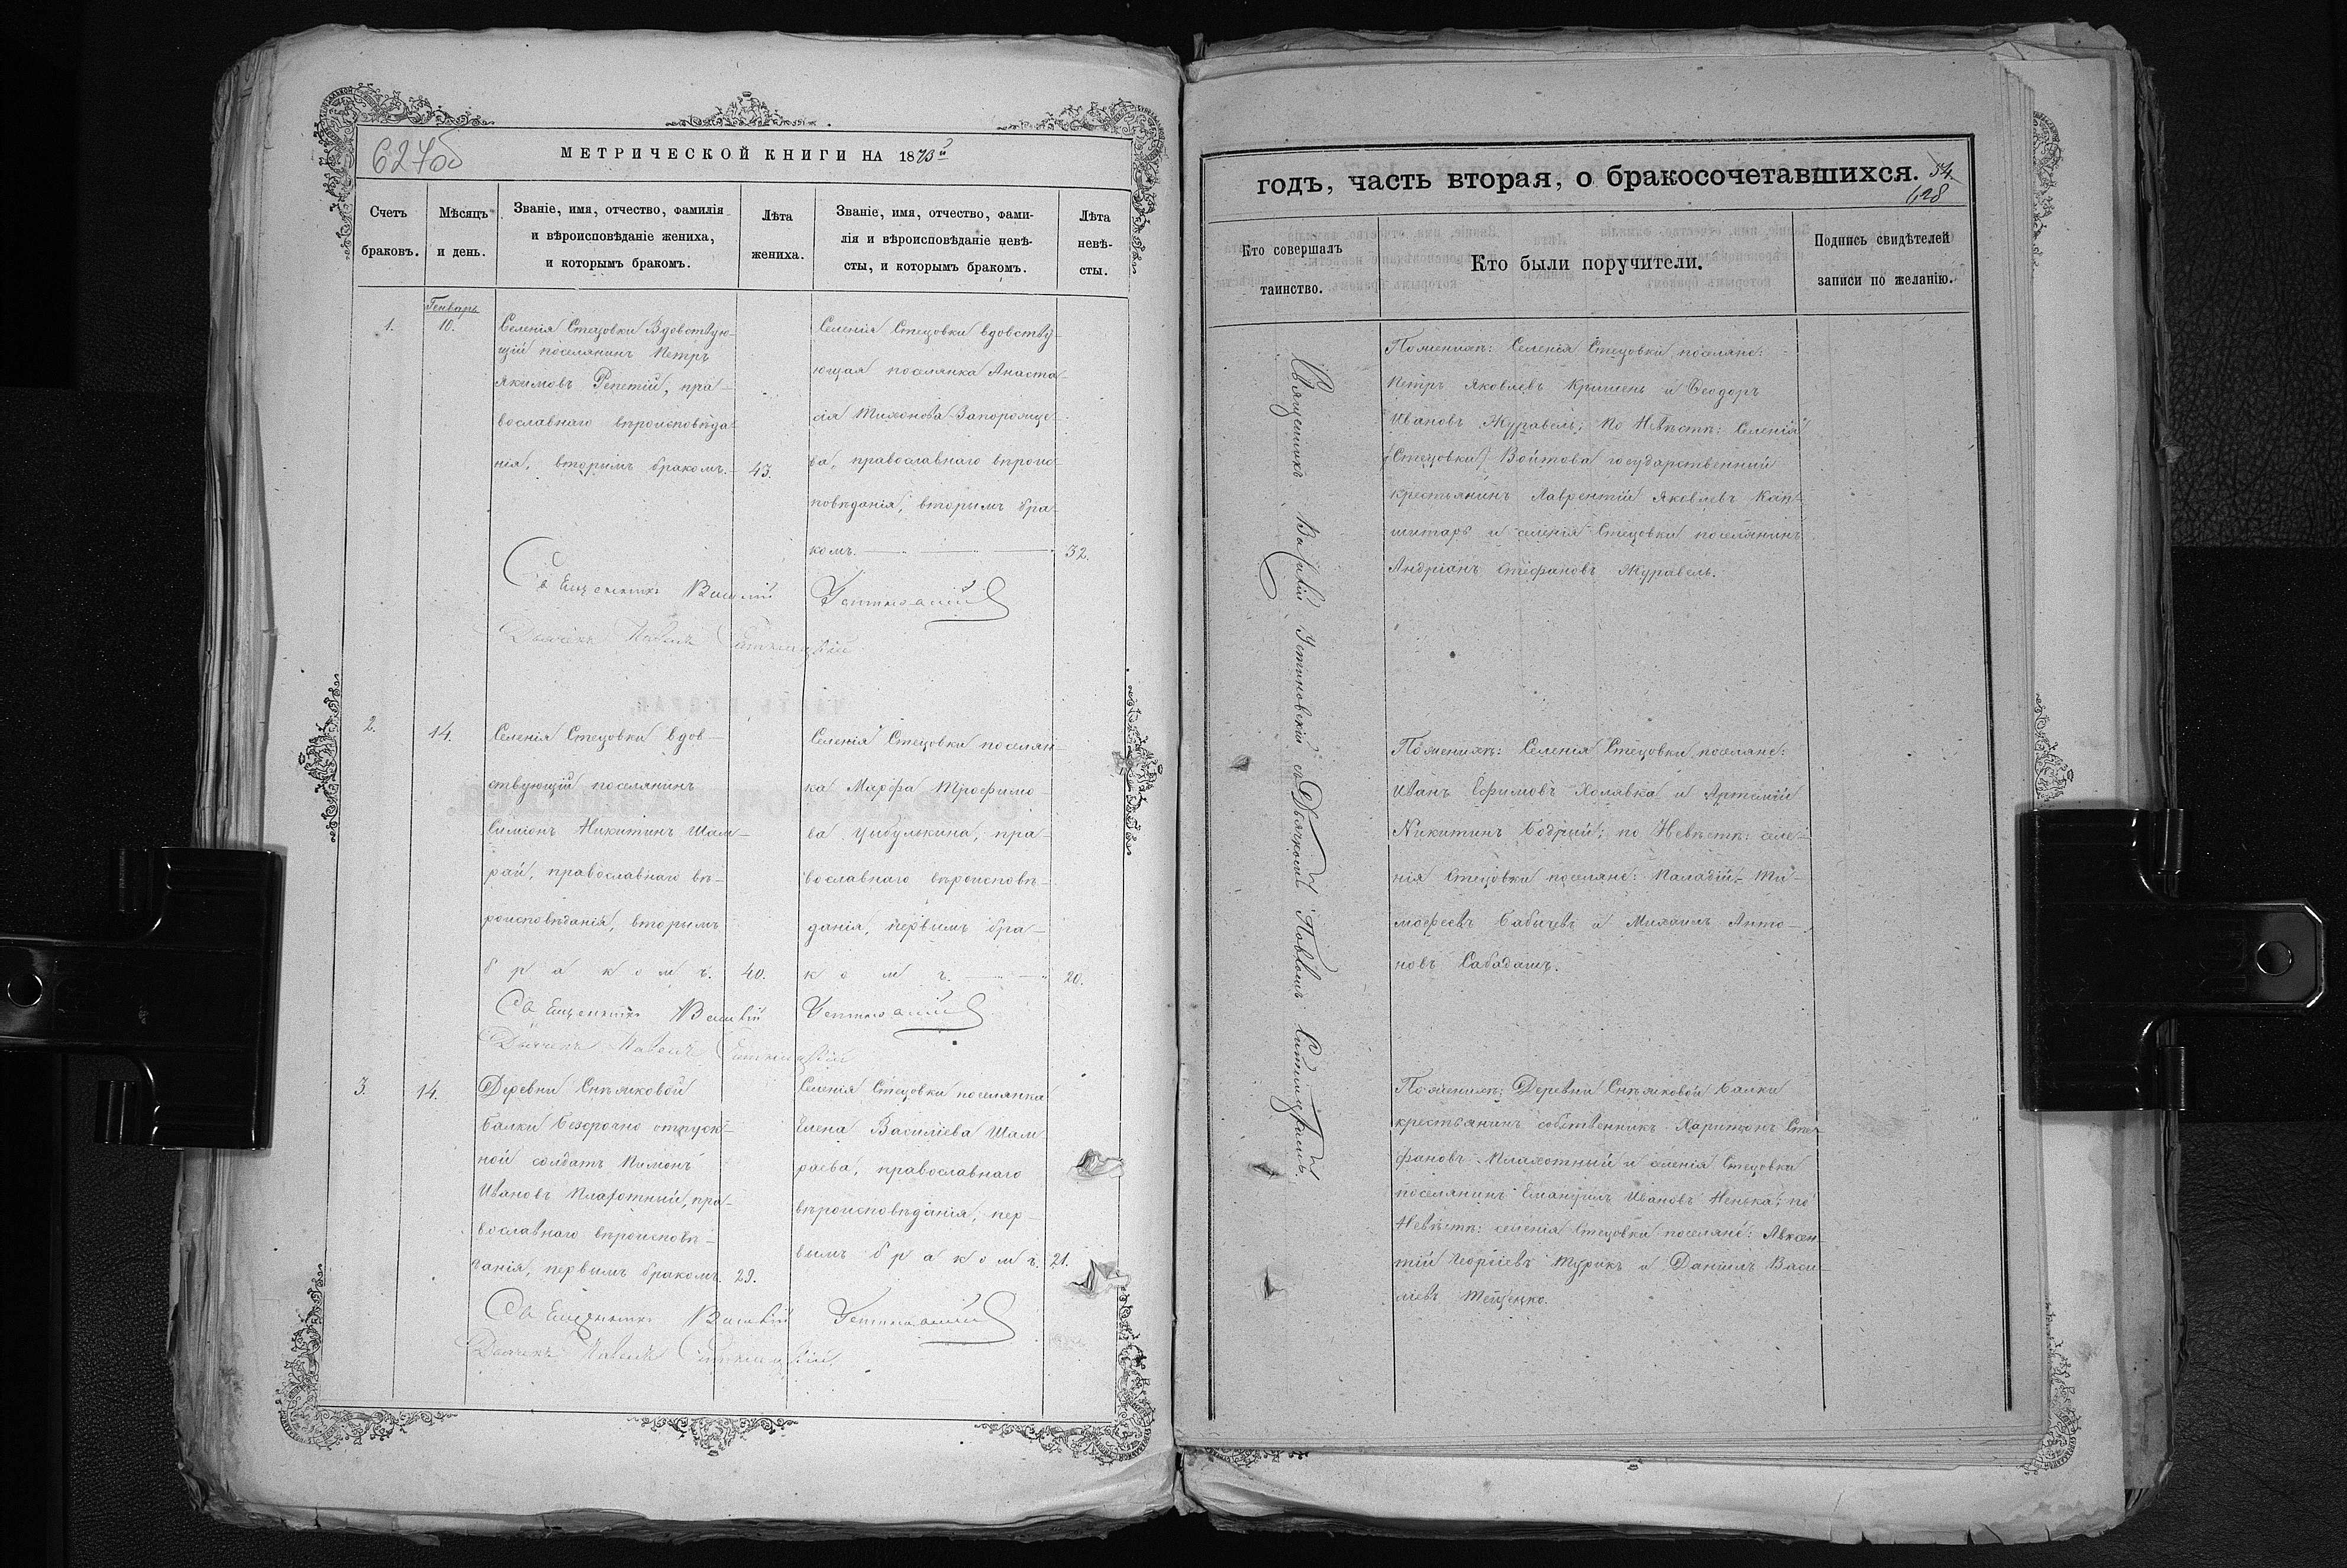 627об
МЕТРИЧЕСКОЙ КНИГИ НА 1873й
Счетъ
браковъ.
Мѣсяцъ
и день.
Званіе, имя, отчество, фамилія
и вѣроисповѣданіе жениха,
и которымъ бракомъ.
Лѣта
жениха.
Званіе, имя, отчество, фами-
лія и вѣроисповѣданіе невѣ-
сты, и которымъ бракомъ.
Лѣта
невѣ-
сты.
Генварь
1.
10.
Селенія Стецовки Вдовствую-
щій поселянинъ Петръ
Якимовъ Репетій, пра-
вославнаго вѣроисповѣда
нія, вторымъ бракомъ.
43.
Селенія Стецовки вдовству-
ющая поселянка Анаста-
сія Тихонова Запорожце-
ва, православнаго вѣроис-
повѣданія, вторымъ бра-
комъ.
32.
Священникъ Василій Устиновскій
Дьячекъ Павелъ
2.
14.
Селенія Стецовки вдов-
ствующій поселянинъ
Симіонъ Никитинъ Шам-
рай, православнаго вѣ-
роисповѣданія, вторымъ
бракомъ.
40.
Селенія Стецовки поселян-
ка Марфа Трофимо-
ва Цибулькина, пра-
вославнаго вѣроисповѣ-
данія, первымъ бра-
комъ.
20.
Священникъ Василій Устиновскій
Дьячекъ Павелъ
3.
14.
Деревни Снѣжковой
Балки безсрочно отпуск-
ной солдатъ Пимонъ
Ивановъ Плахотный, пра-
вославнаго вѣроисповѣ-
данія, первымъ бракомъ.
29.
Селенія Стецовки поселянка
Елена Василіева Шам
раева, православнаго
вѣроисповѣданія, пер-
вымъ бракомъ.
21.
Священникъ Василій Устиновскій
Дьячекъ Павелъ
годъ, часть вторая, о бракосочетавшихся.
54
628
Кто совершалъ
таинство.
Кто были поручители.
Подпись свидѣтелей
записи по желанію.
Священникъ Василій Устиновскій съ Дьячкомъ Павломъ
По женихѣ: Селенія Стецовки поселяне:
Петръ Яковлевъ Кришень и Ѳеодоръ
Ивановъ Журавель; по Невѣстѣ: Селенія
(Стецовки) Войтова государственный
крестьянинъ Лаврентій Яковлевъ Кап-
шитарь и селенія Стецовки поселянинъ
Андріанъ Стефановъ Журавель.
По женихѣ: Селенія Стецовки поселяне:
Иванъ Ефимовъ Холявка и Артемій
Никитинъ Бодрый; по Невѣстѣ: селе-
нія Стецовки поселяне: Паладій Ти-
мофеевъ Бабичевъ и Михаилъ Анто-
новъ Сабадашъ.
По женихѣ: Деревни Снѣжковой Балки
крестьянинъ собственникъ Харитонъ Сте-
фановъ Плахотный и селенія Стецовки
поселянинъ Емануилъ Ивановъ Ненька; по
Невѣстѣ: селенія Стецовки поселяне: Авксен-
тій Георгіевъ Турикъ и Даніилъ Васи-
ліевъ Тещенко.